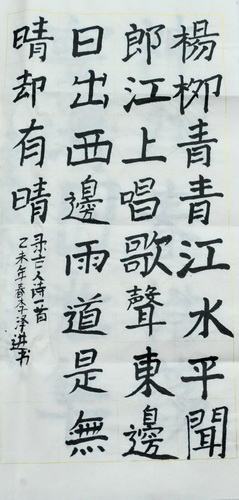 楊柳青青江水平聞
郎江上唱歌聲東邊
日出西邊雨道是無
晴却有晴
录古人诗一首
乙未年春李泽进书